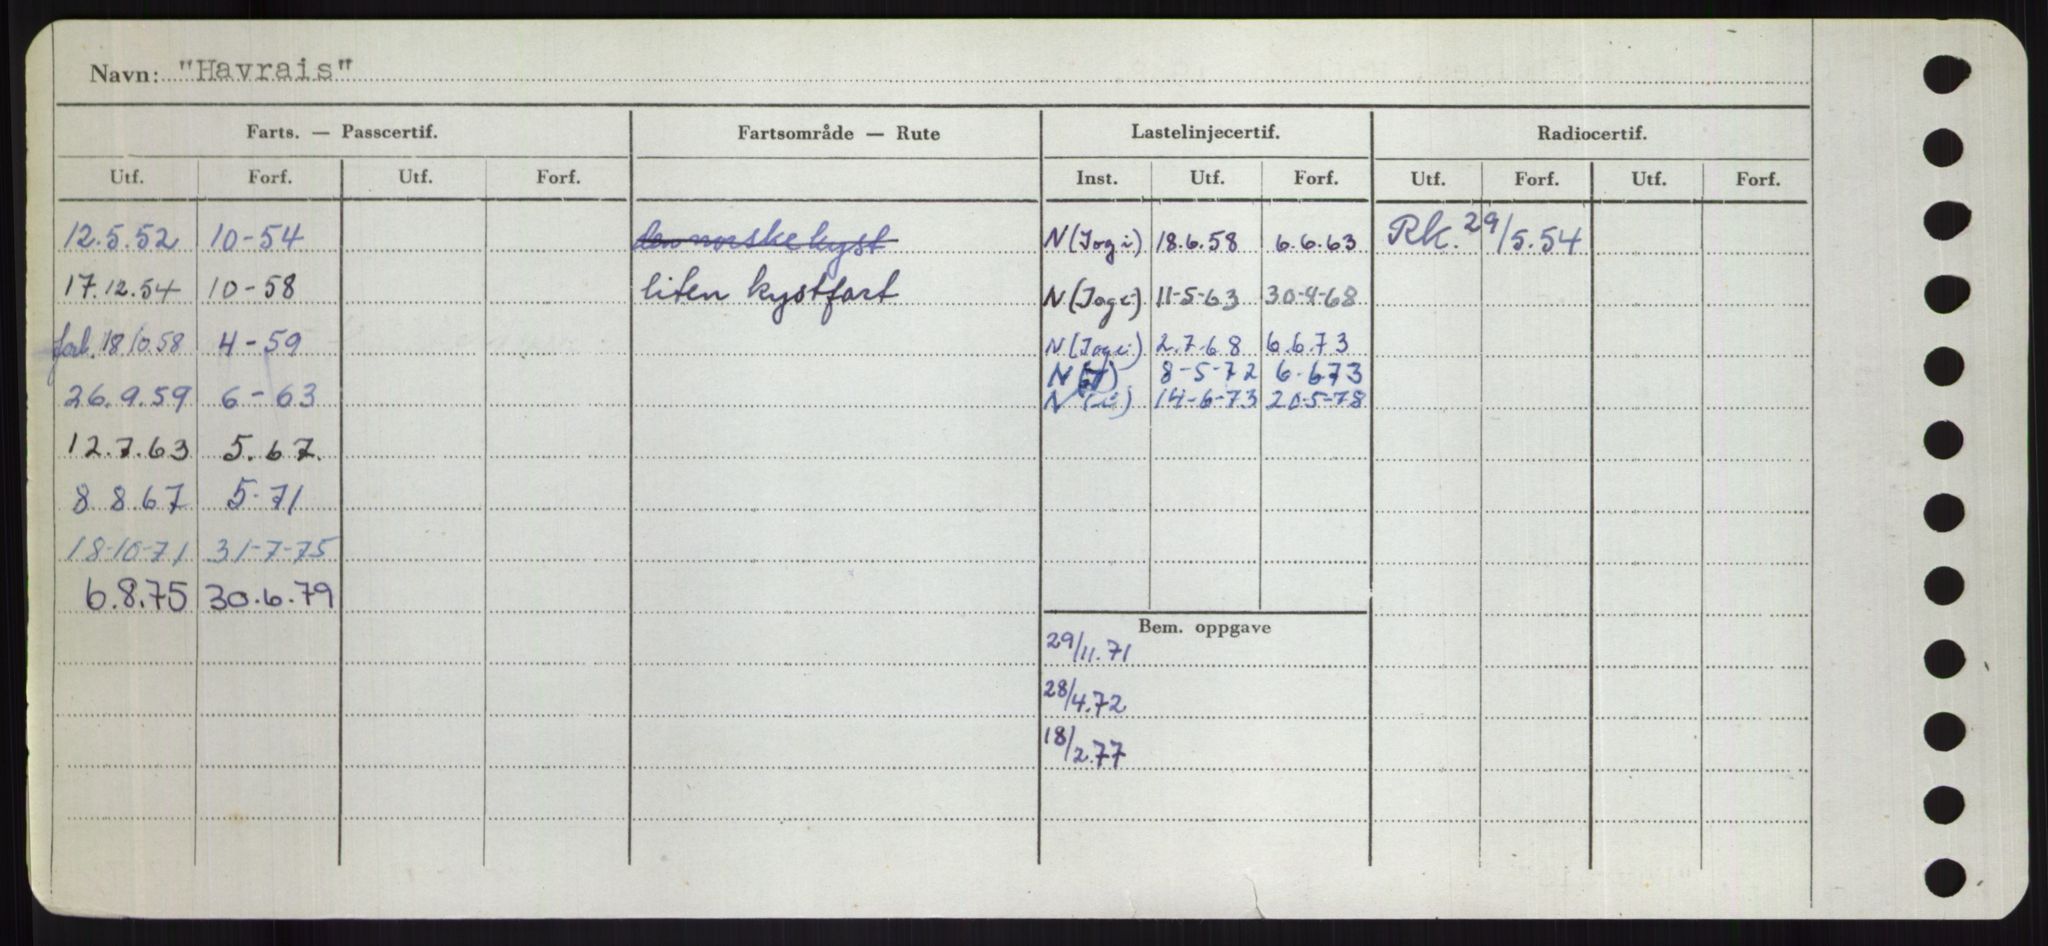 Navn: "Havrais"
Farts. — Passcertif. Fartsområde — Rute Lastelinjecertif. Radiocertif.
Utf. Forf. Utf. Forf. Inst. Utf. Forf. Utf. Forf. Utf. Forf.
12.5.52 10-54 den norske kyst N (J og i) 18.6.58 6.6.63 Rk. 29/5.54
17.12.54 10-58 liten kystfart N (J og i) 11-5-63 30-4-68
forl. 18/10.58 4-59 N (J og i) 2.7.68 6.6.73
N 8-5-72 6.6.73
26.9.59 6-63 N (i) 14-6-73 20-5-78
12.7.63 5.67.
8.8.67 5.71
18-10-71 31-7-75
6.8.75 30.6.79
Bem. oppgave
29/11.71
28/4.72
18/2.77